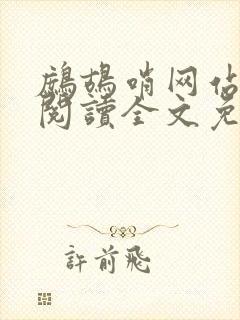 鷓鴣哨网
閱讀全文免
許前飛